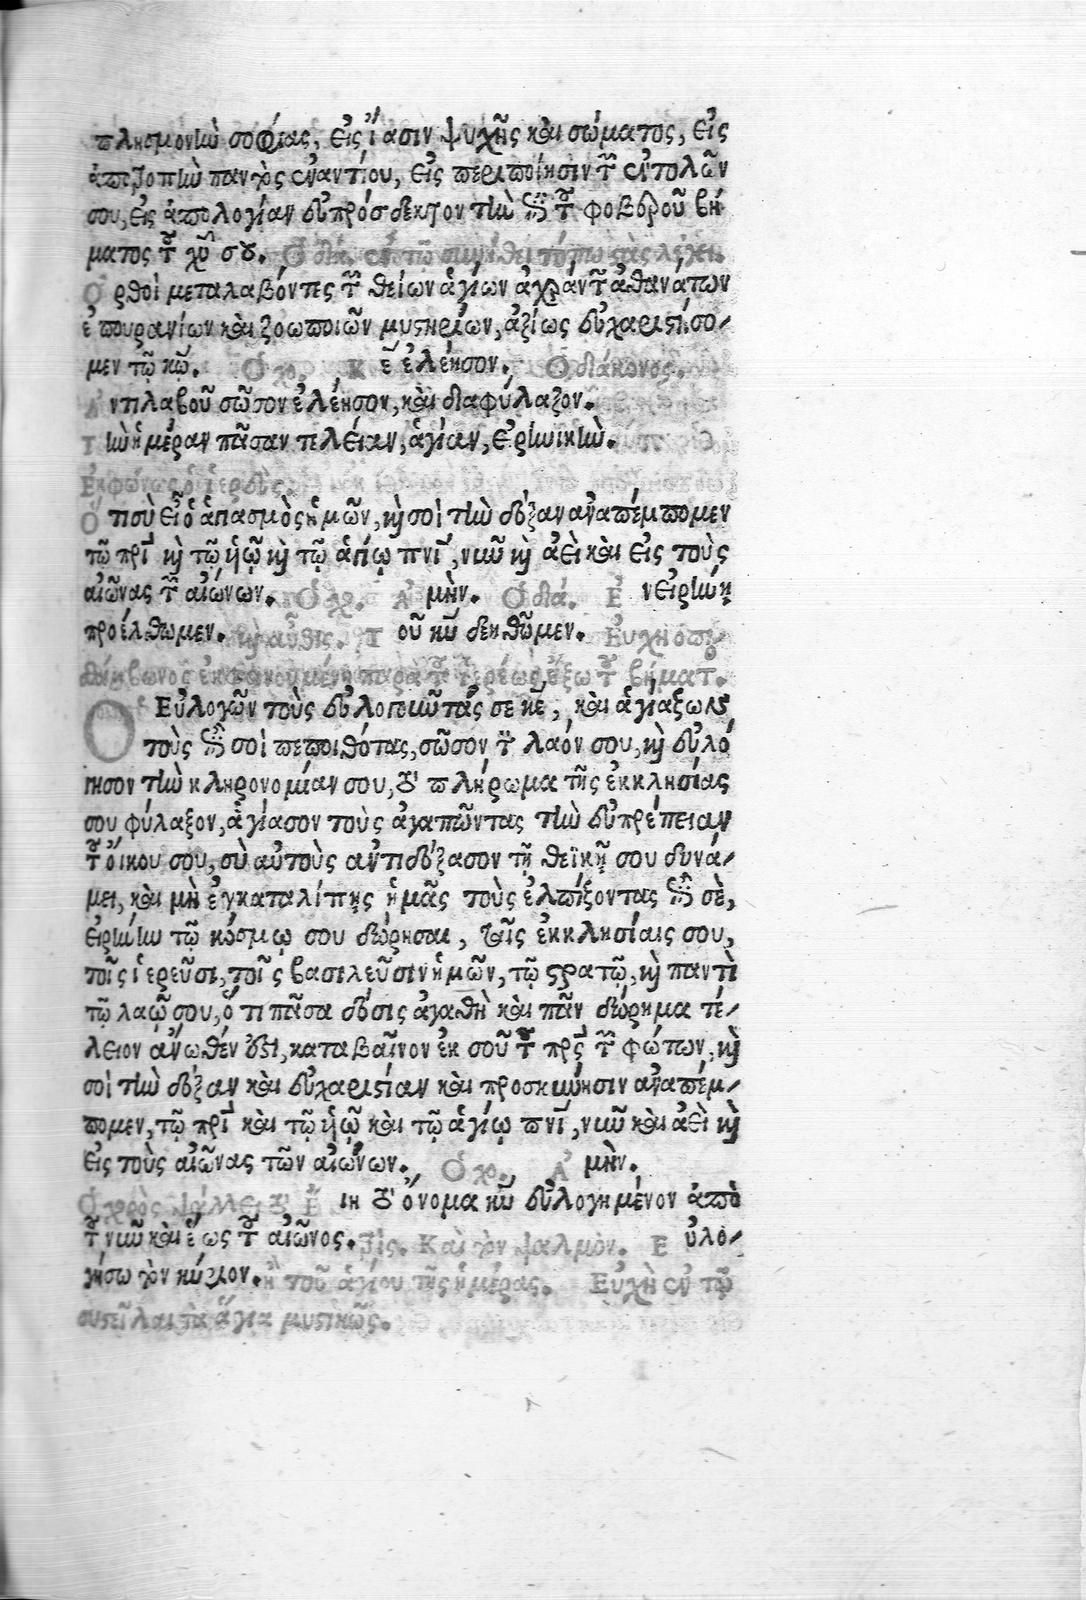 πλησμονὴν σοφίας, εἰς ἴασιν ψυχῆς καὶ σώματος, εἰς
ἀποτροπὴν παντὸς ἐναντίου, εἰς περιποίησιν τῶν ἐντολῶν
σου, εἰς ἀπολογίαν εὐπρόσδεκτον τὴν ἐπὶ τοῦ φοβεροῦ βή
ματος τοῦ χυ̅ σου. Ὁ διά. ἐν τῷ συνήθει τόπῳ στὰς λέγει.
Ὀρθοὶ μεταλαβόντες τῶν θείων ἁγίων ἀχράντων ἀθανάτων
ἐπουρανίων καὶ ζωοποιῶν μυστηρίων, ἀξίως εὐχαριστήσο-
μεν τῷ κω̅. Ὁ χο. Κε̅ ἐλέησον. Ὁ διάκονος.
Ἀντιλαβοῦ σῶσον ἐλέησον, καὶ διαφύλαξον.
Τὴν ἡμέραν πᾶσαν τελείαν, ἁγίαν, εἰρηνικὴν.
Ἐκφώνως ὁ ἱερεὺς.
Ὅτι σὺ εἶ ὁ ἁγιασμὸς ἡμῶν, καὶ σοὶ τὴν δόξαν ἀναπέμπομεν
τῷ πρι̅ καὶ τῷ ὑιῷ καὶ τῷ ἁγίῳ πνι̅, νῦν καὶ ἀεὶ καὶ εἰς τοὺς
αἰῶνας τῶν αἰώνων. Ὁ χο. Ἀμὴν. Ὁ διά. Ἐν εἰρήνῃ
προέλθωμεν. καὶ αὖθις. Τοῦ κυ̅ δεηθῶμεν. Εὐχὴ ὀπι-
θάμβωνος ἐκφωνουμένη παρὰ τοῦ ἱερέως ἔξω τοῦ βήματος.
Ὁ Εὐλογῶν τοὺς εὐλογοῦντάς σε κε̅, καὶ ἁγιάζων
τοὺς ἐπὶ σοὶ πεποιθότας, σῶσον τὸν λαόν σου, καὶ εὐλό
γησον τὴν κληρονομίαν σου, τὸ πλήρωμα τῆς ἐκκλησίας
σου φύλαξον, ἁγίασον τοὺς ἀγαπῶντας τὴν εὐπρέπειαν
τοῦ οἴκου σου, σὺ αὐτοὺς ἀντιδόξασον τῇ θεϊκῇ σου δυνά-
μει, καὶ μὴ ἐγκαταλίπῃς ἡμᾶς τοὺς ἐλπίζοντας ἐπὶ σὲ,
εἰρήνην τῷ κόσμῳ σου δώρησαι, ταῖς ἐκκλησίαις σου,
τοῖς ἱερεῦσι, τοῖς βασιλεῦσιν ἡμῶν, τῷ στρατῷ, καὶ παντὶ
τῷ λαῷ σου, ὅτι πᾶσα δόσις ἀγαθὴ καὶ πᾶν δώρημα τέ-
λειον ἄνωθέν ἐστι, καταβαῖνον ἐκ σοῦ τοῦ πρς̅ τῶν φώτων, καὶ
σοὶ τὴν δόξαν καὶ εὐχαριστίαν καὶ προσκύνησιν ἀναπέμ-
πομεν, τῷ πρι̅ καὶ τῷ ὑιῷ καὶ τῷ ἁγίῳ πνι̅, νῦν καὶ ἀεὶ καὶ
εἰς τοὺς αἰῶνας τῶν αἰώνων. Ὁ χο. Ἀμὴν.
Ὁ χορὸς ψάλλει τὸ Εἴη τὸ ὄνομα κυ̅ εὐλογημένον ἀπὸ
τοῦ νῦν καὶ ἕως τοῦ αἰῶνος. τρίς. Καὶ τὸν ψαλμὸν. Εὐλο-
γήσω τὸν κύριον. ἢ τοῦ ἁγίου τῆς ἡμέρας. Εὐχὴ ἐν τῷ
συστεῖλαι τὰ ἅγια μυστικῶς.